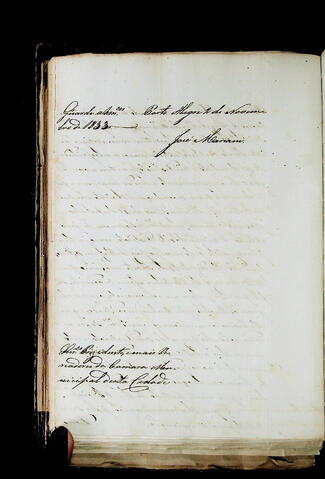 Guarde a Vm.ces Porto Alegre de Novem
bro de 1833
José Mariani
Snr.es Prezidente, e mais Ve
readores da Camara Mu
nicipal desta Cidade